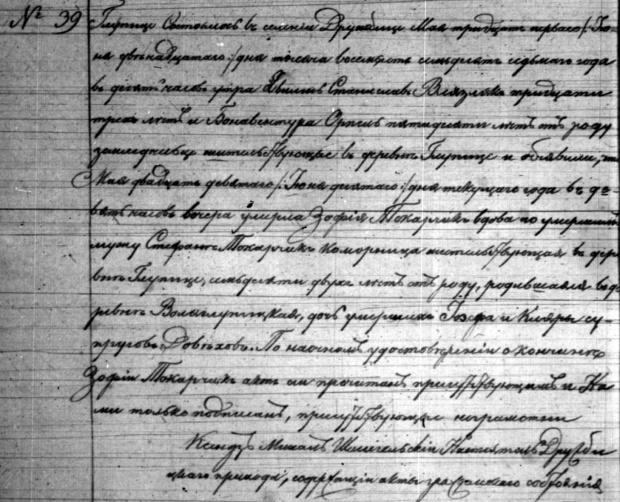 № 39 Глупице Состоялось в селении Дружбице Мая тридцать перваго /: Iю-
ня двѣнадцатаго :/ дня тысяча восемьсотъ семьдесятъ седьмаго года
въ десять часовъ утра Явились Станиславъ тридцати
трехъ лѣтъ и Бонавентура пятидесяти лѣтъ отъ роду
жительствующіе въ деревнѣ Глупице и объявили, что
Мая двадцать девятаго /: Iюня десятаго :/ дня текущаго года въ де-
вять часовъ вечера умерла Зофія Токарчикъ вдова по умершемъ
мужу Стефанѣ Токарчикъ коморница жительствующая въ дер-
внѣ Глупице, семьдесяти двухъ лѣтъ отъ роду, родившаяся въ де-
ревнѣ дочь умершихъ и Кляры су-
пруговъ По настоящемъ удостовѣреніи о кончинѣ
Зофіи Токарчикъ актъ сей прочитанъ присутствующимъ и На-
ми только подписанъ, присутствующіе неграмотны
Ксендзъ Михалъ Настоятель Дружби
цкаго прихода, содержащій акты гражданскаго состоянія